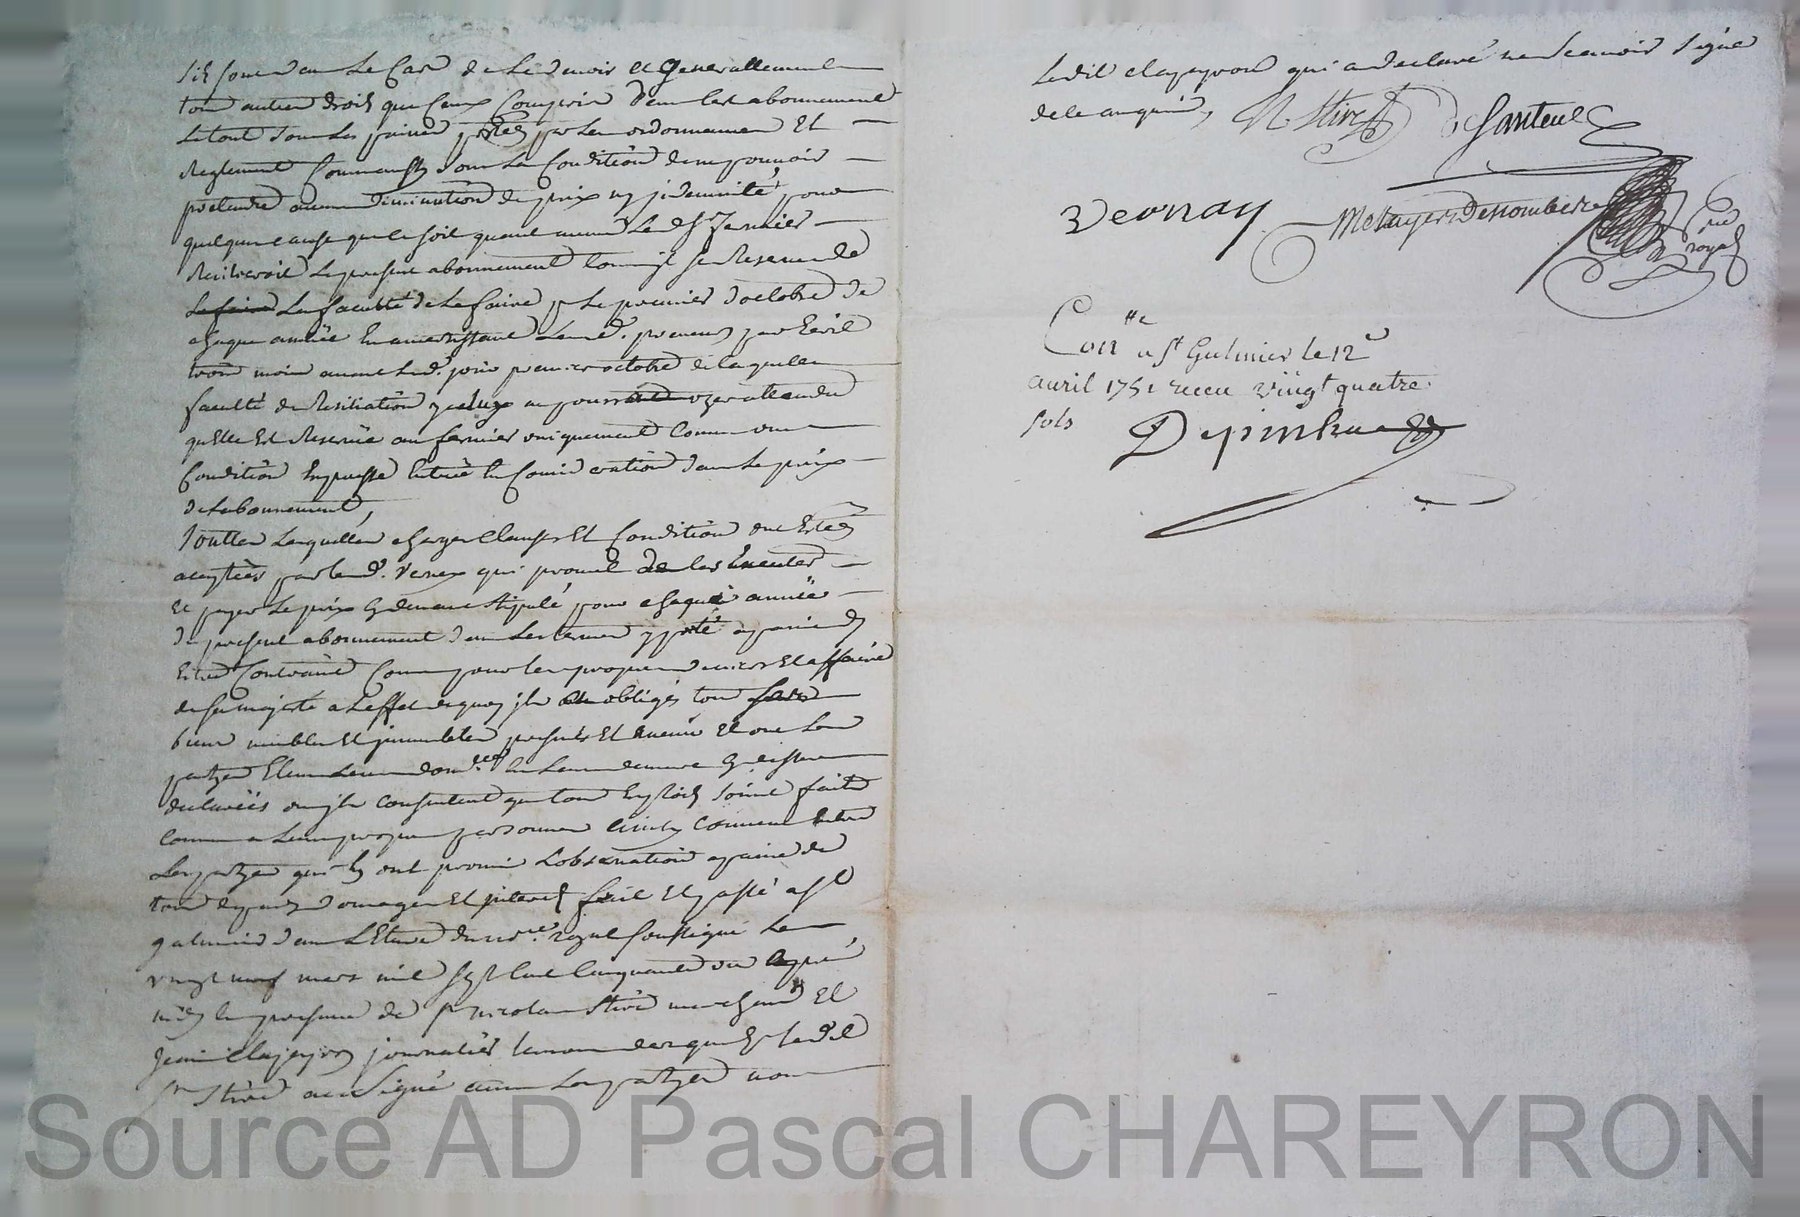 s'ils sont dans le Cas de le devoir et Generallement
tous autres droits que Ceux Compris dans les abonnement
le tout sous les peines portées par les ordonnances Et
Reglement Comme aussy sous la Condition de ne pouvoir
pretendre aucune diminution de prix ny jndemnité, pour
quelque cause que ce soit quand mesme Le dt Sr fermier
Resilieroit Le present abonnement Comme jl se Reserve de
Le faire La faculté de Le faire pr Le premier d'octobre de
chaque année En avertissant Les d. preneurs par Ecrit
trois mois avant Led. jour premier octobre de laquelle
faculté de Resiliation yceluy ne pourront user attendu
qu'Elle Est Reservée au fermier uniquement Comme une
Condition Expresse Entrée En Consideration dans Le prix
de Labonnement,
Toutes Lesquelles charges Clauses Et Condition ont Estés
aceptées par led. Vernay qui promet de les Executer
Et payer Le prix Cy devant stipulé pour chaque année
du present abonnement dans Les termes y porté a paine d'y
Estre Contraint Comme pour les propres deniers Et affaires
de sa majesté a Leffet de quoy jls ont obligés tous leurs
biens meubles Et jmmeubles presents Et avenir Et ont Les
parties Elu Leurs domiles En Leurs demeures Cy dessus
declarées ou jls Consentent que tous Exploits soient faits
comme a Leurs propres personnes ainsy Convenu Entre
Les parties qui En ont promis L'observation a paine de
tous depens domages Et jnterets fait Et passé a St
galmier dans L'Etude du nore royal soussigné Le
vingt neuf mars mil sept Cent Cinquante un apres
midy En presence de Sr nicolas Stive marchand Et
Jean Clapeyron journalier temoins desquels Ledit
Sr Stive a signé avec Les parties non
Ledit clapeyron qui a declaré ne Scavoir signé
de ce enquis,
N. Stive
De Santeul
Vernay
Motayer Desombere
Nre royal
Conlle a St Galmier le 12e
avril 1751 receu vingt quatre
sols
Depinhac
Source AD Pascal CHAREYRON